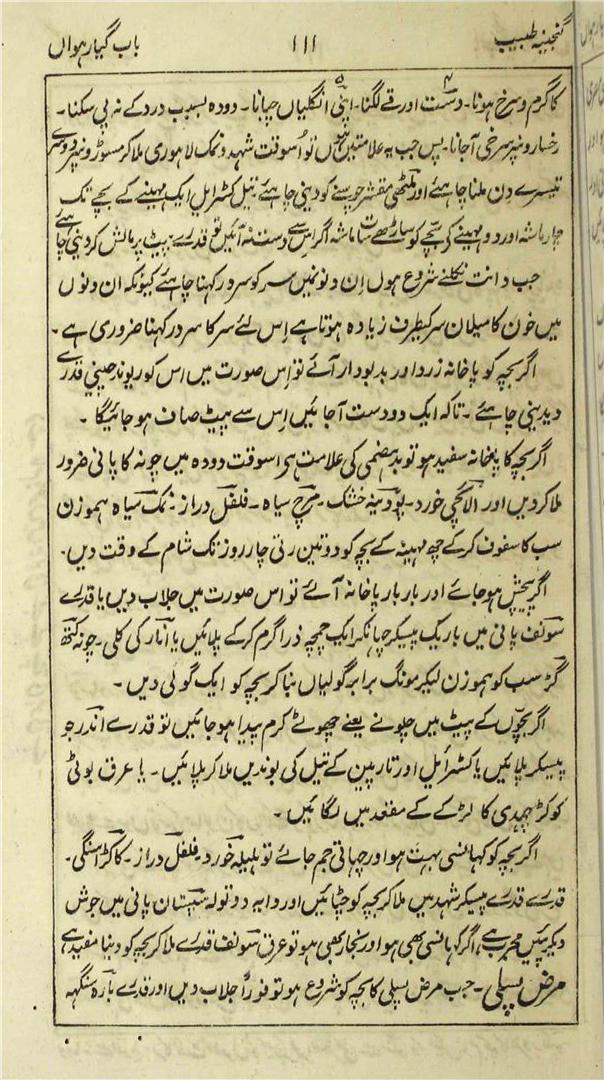 گنجینہ طبیب ۱۱۱ باب گیارہواں
کا گرم و سرخ ہونا۔ ۴ دست اور قے لگنا۔ ۵ اپنی انگلیاں چبانا۔ دودہ بسبب درد کے نہ پی سکنا۔
رخسارونپر سرخی آجانا۔ پس جب یہ علامتیں ہوں تو اُسوقت شہد و نمک لاہوری ملا کر مسوڑونپر دوسرے
تیسرے دن ملنا چاہئے اور ملٹھی مقشر چوسنے کو دینی چاہئے تیل کسٹرایل ایک مہینے کے بچے تک
چار ماشہ اور دو مہینے کی بچے کو ساڑھے سات ماشہ اگر اس سے دست نہ آئیں تو قدرے پیٹ پر مالش کردینی چاہئے
جب دانت نکلنے شروع ہوں اِن دنونمیں سر کو سرد رکہنا چاہئے کیونکہ ان دنوں
میں خون کا میلان سر کیطرف زیادہ ہوتا ہے اِس لئے سر کا سرد رکہنا ضروری ہے۔
اگر بچہ کو پاخانہ زرد اور بدبودار آئے تو اِس صورت میں اس کو ریوند چینی قدرے
دیدینی چاہئے۔ تاکہ ایک دو دست آجائیں اِس سے پیٹ صاف ہو جائیگا۔
اگر بچہ کا پاخانہ سفید ہو تو بدہضمی کی علامت ہی اسوقت دودہ میں چونہ کا پانی ضرور
ملا کر دیں اور الائچی خورد۔ پودینہ خشک۔ مرچ سیاہ۔ فلفل دراز۔ نمک سیاہ ہموزن
سب کا سفوف کر کے چھ مہینہ کے بچہ کو دو تین رتی چار روز تک شام کے وقت دیں۔
اگر پیچش ہو جائے اور بار بار پاخانہ آئے تو اس صورت میں جلاب دیں یا قدرے
سونف پانی میں باریک پیسکر چہانکر ایک چمچہ ذرا گرم کر کے پلائیں یا انار کی کلی۔ چونہ کتھ
گڑ سب کو ہموزن لیکر مونگ برابر گولیاں بنا کر بچہ کو ایک گولی دیں۔
اگر بچوں کے پیٹ میں چلونے یعنے چھوٹے کرم پیدا ہو جائیں تو قدرے اندرجو
پیسکر پلائیں یا کسٹرائیل اور تارپین کے تیل کی بوندیں ملا کر پلائیں۔ یا عرق بوٹی
کوکڑچہدی کا لڑکے کے مقعد میں لگائیں۔
اگر بچہ کو کہانسی بہت ہو اور چہاتی جم جائے تو ہلیلہ خورد۔ فلفل دراز۔ کاکڑاسنگی۔
قدرے قدرے پیسکر شہد میں ملا کر بچہ کو چٹائیں اور دایہ دو تولہ سپستان پانی میں جوش
دیکر پئیں مجرب ہے، اگر کہانسی بھی ہو اور بخار بھی ہو تو عرق سونف قدرے ملا کر بچہ کو دینا مفید ہے
مرض پسلی۔ جب مرض پسلی کا بچہ کو شروع ہو تو فوراً جلاب دیں اور قدرے بارہ سنگہہ